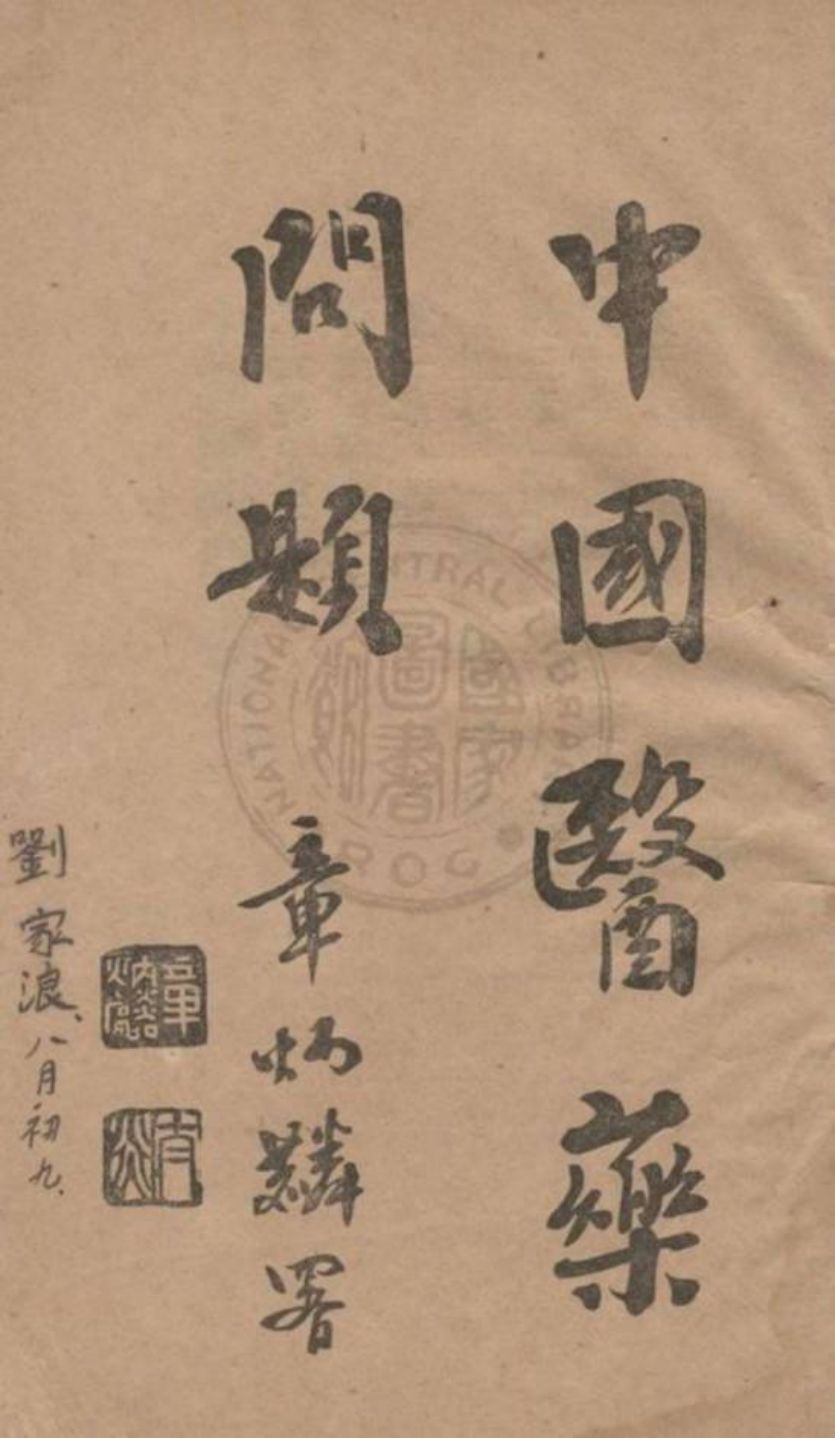 中國醫藥
問題
章炳麟署
劉家浪、八月初九、
NATIONAL CENTRAL LIBRARY
國家圖書館
ROC